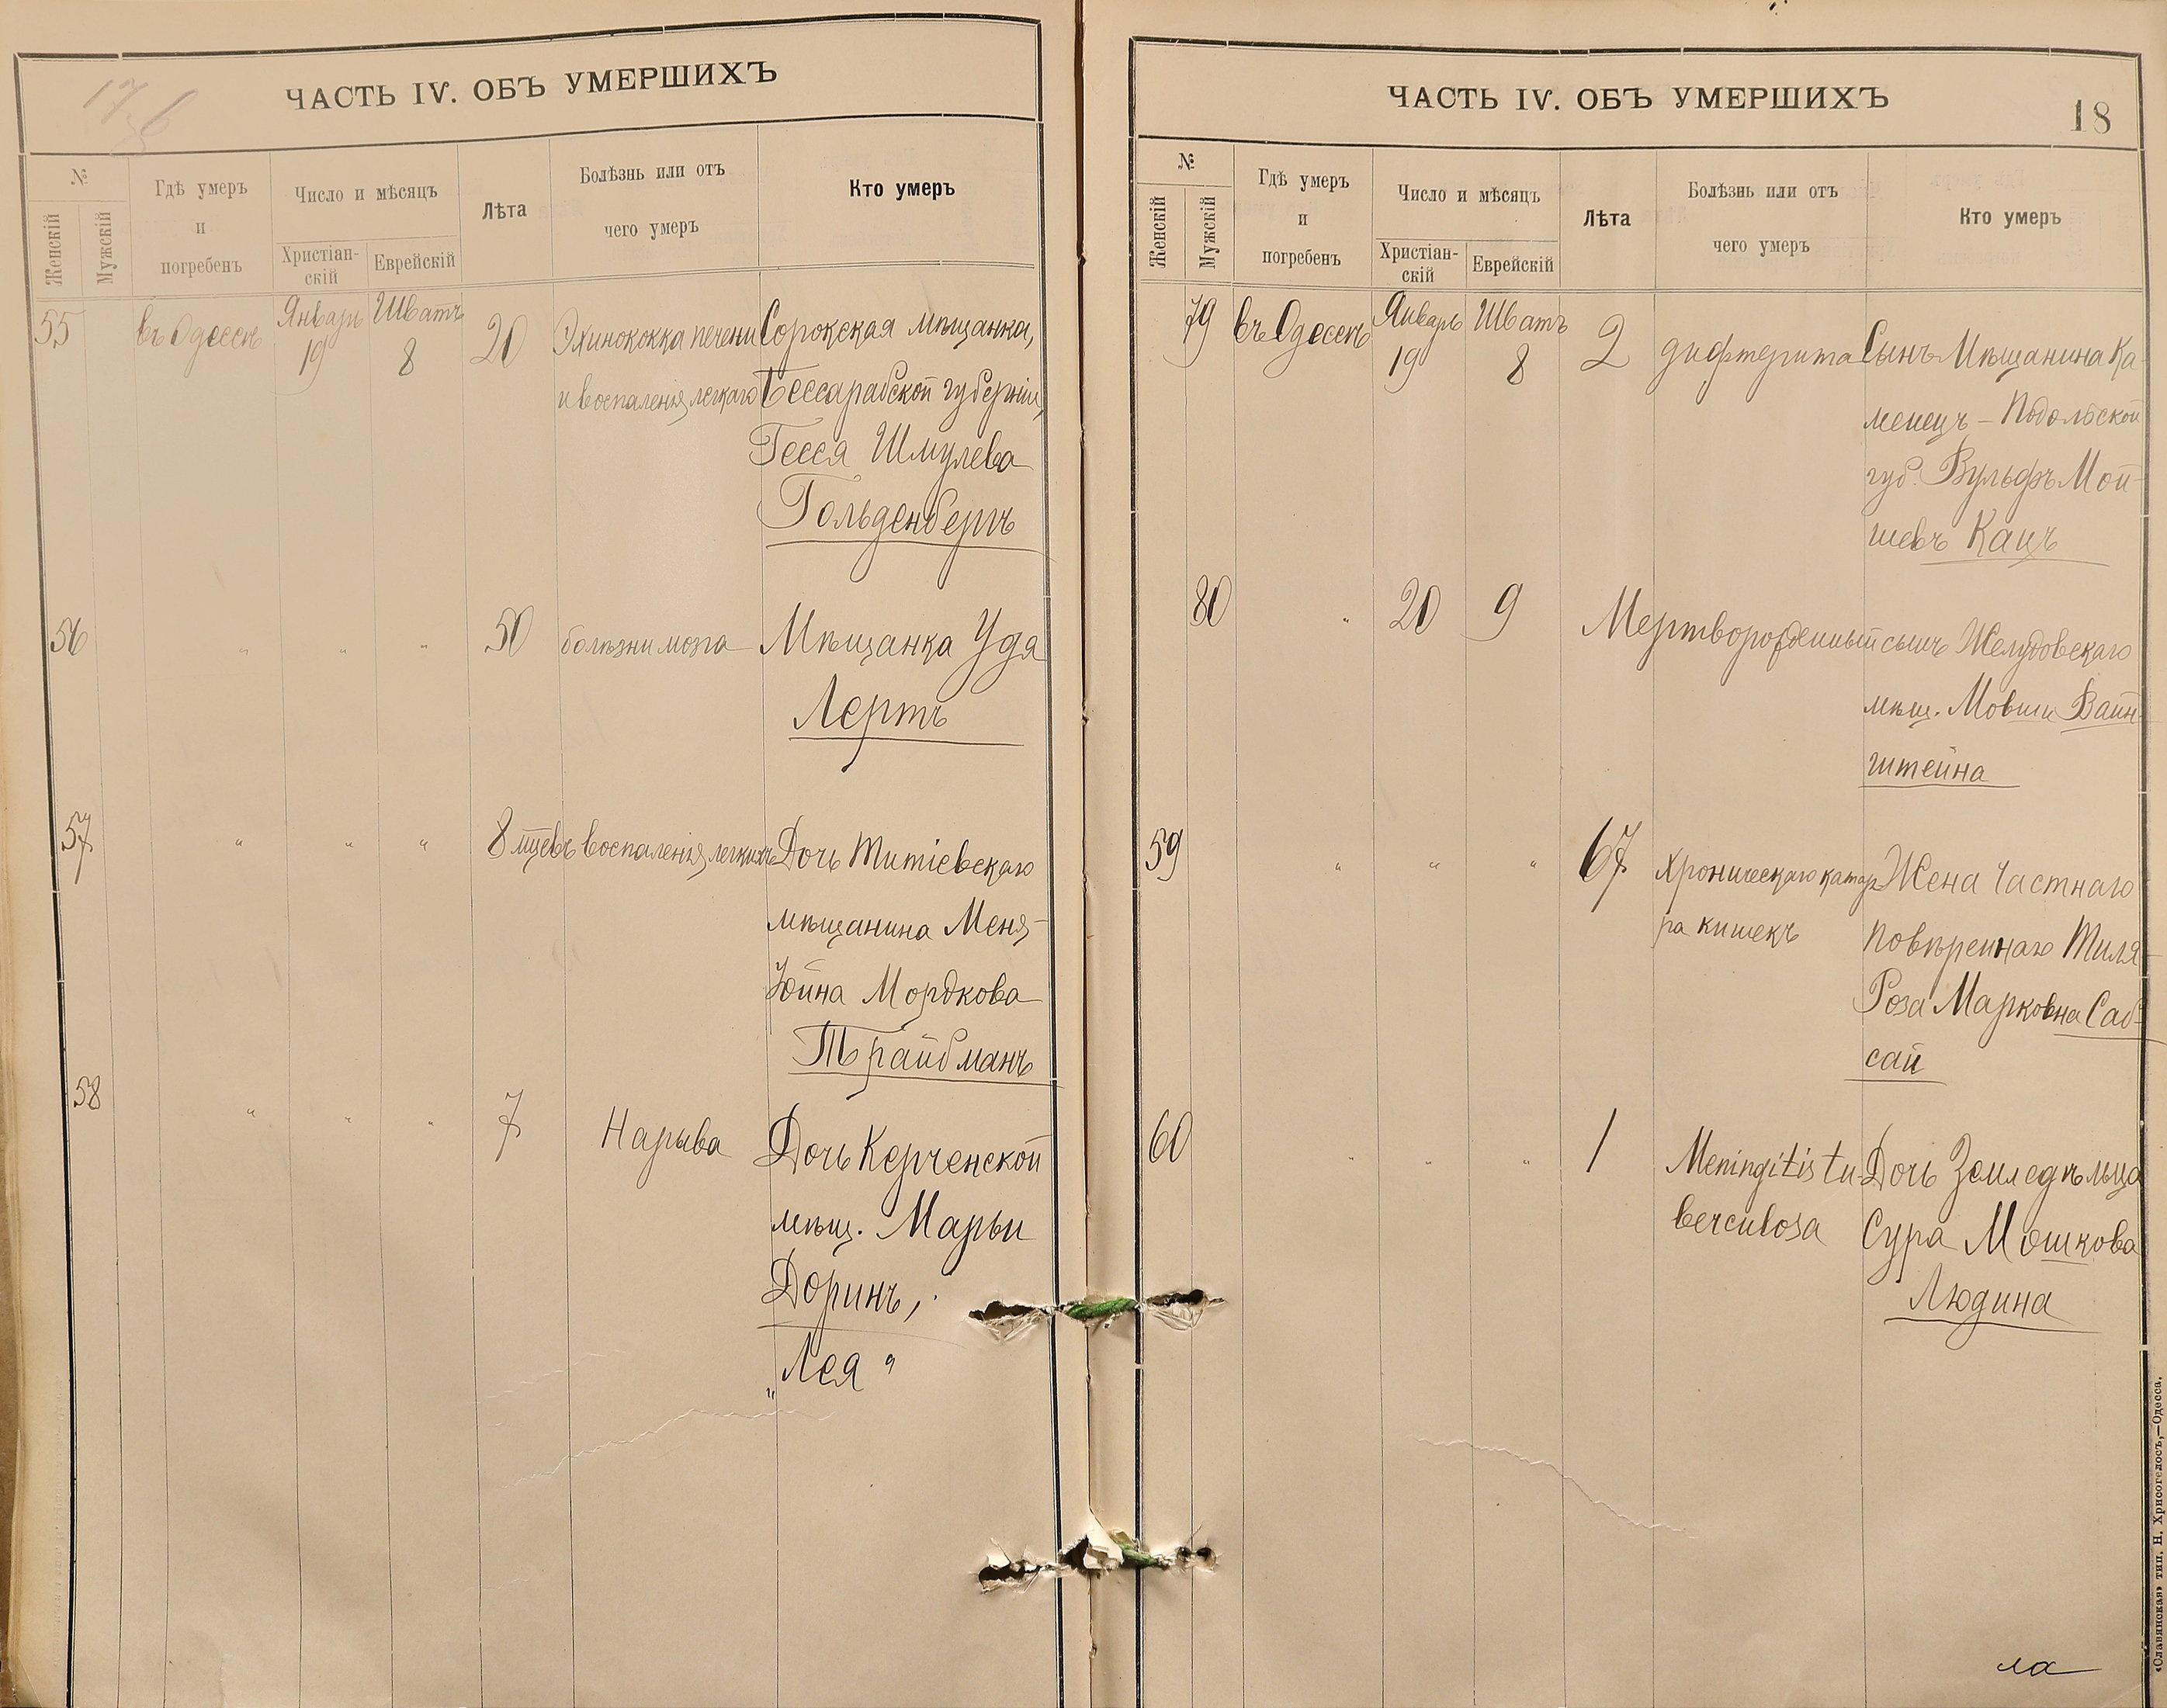 ЧАСТЬ IV. ОБЪ УМЕРШИХЪ
№
Женскій
Мужскій
Гдѣ умеръ
и
погребенъ
Число и мѣсяцъ
Христіан-
скій
Еврейскій
Лѣта
Болѣзнь или отъ
чего умеръ
Кто умеръ
55 въ Одессѣ Январь 19 Шватъ 8 20 Эхинококка печени Сорокская мѣщанка,
и воспаленія легкаго Бессарабской губерніи,
Гесся Шмулева
Гольденбергъ
56 " " " 50 болѣзни мозга Мѣщанка Удя
Лертъ
57 " " " 8 мцевъ воспаленія легкихъ Дочь Титіевскаго
мѣщанина Меня-
Юйна Мордкова
Трайбманъ
58 " " " 7 Нарыва Дочь Керченской
мѣщ. Марьи
Доринъ,
"Лея"
ЧАСТЬ IV. ОБЪ УМЕРШИХЪ
18
№
Женскій
Мужскій
Гдѣ умеръ
и
погребенъ
Число и мѣсяцъ
Христіан-
скій
Еврейскій
Лѣта
Болѣзнь или отъ
чего умеръ
Кто умеръ
79 въ Одессѣ Январь 19 Шватъ 8 2 дифтерита Сынъ Мѣщанина Ка-
менецъ-Подольской
губ. Вульфъ Мой-
шевъ Кацъ
80 " 20 9 Мертворожденный сынъ Желудовскаго
мѣщ. Мовши Вайн-
штейна
59 " " " 67 Хроническаго катар- Жена Частнаго
ра кишекъ Повѣреннаго Тиля-
Роза Марковна Саб-
сай
60 " " " 1 Meningitis tu- Дочь Земледѣльца
berculosa Сура Мошкова
Людина
«Славянская» тип. Н. Хрисогелосъ,—Одесса.